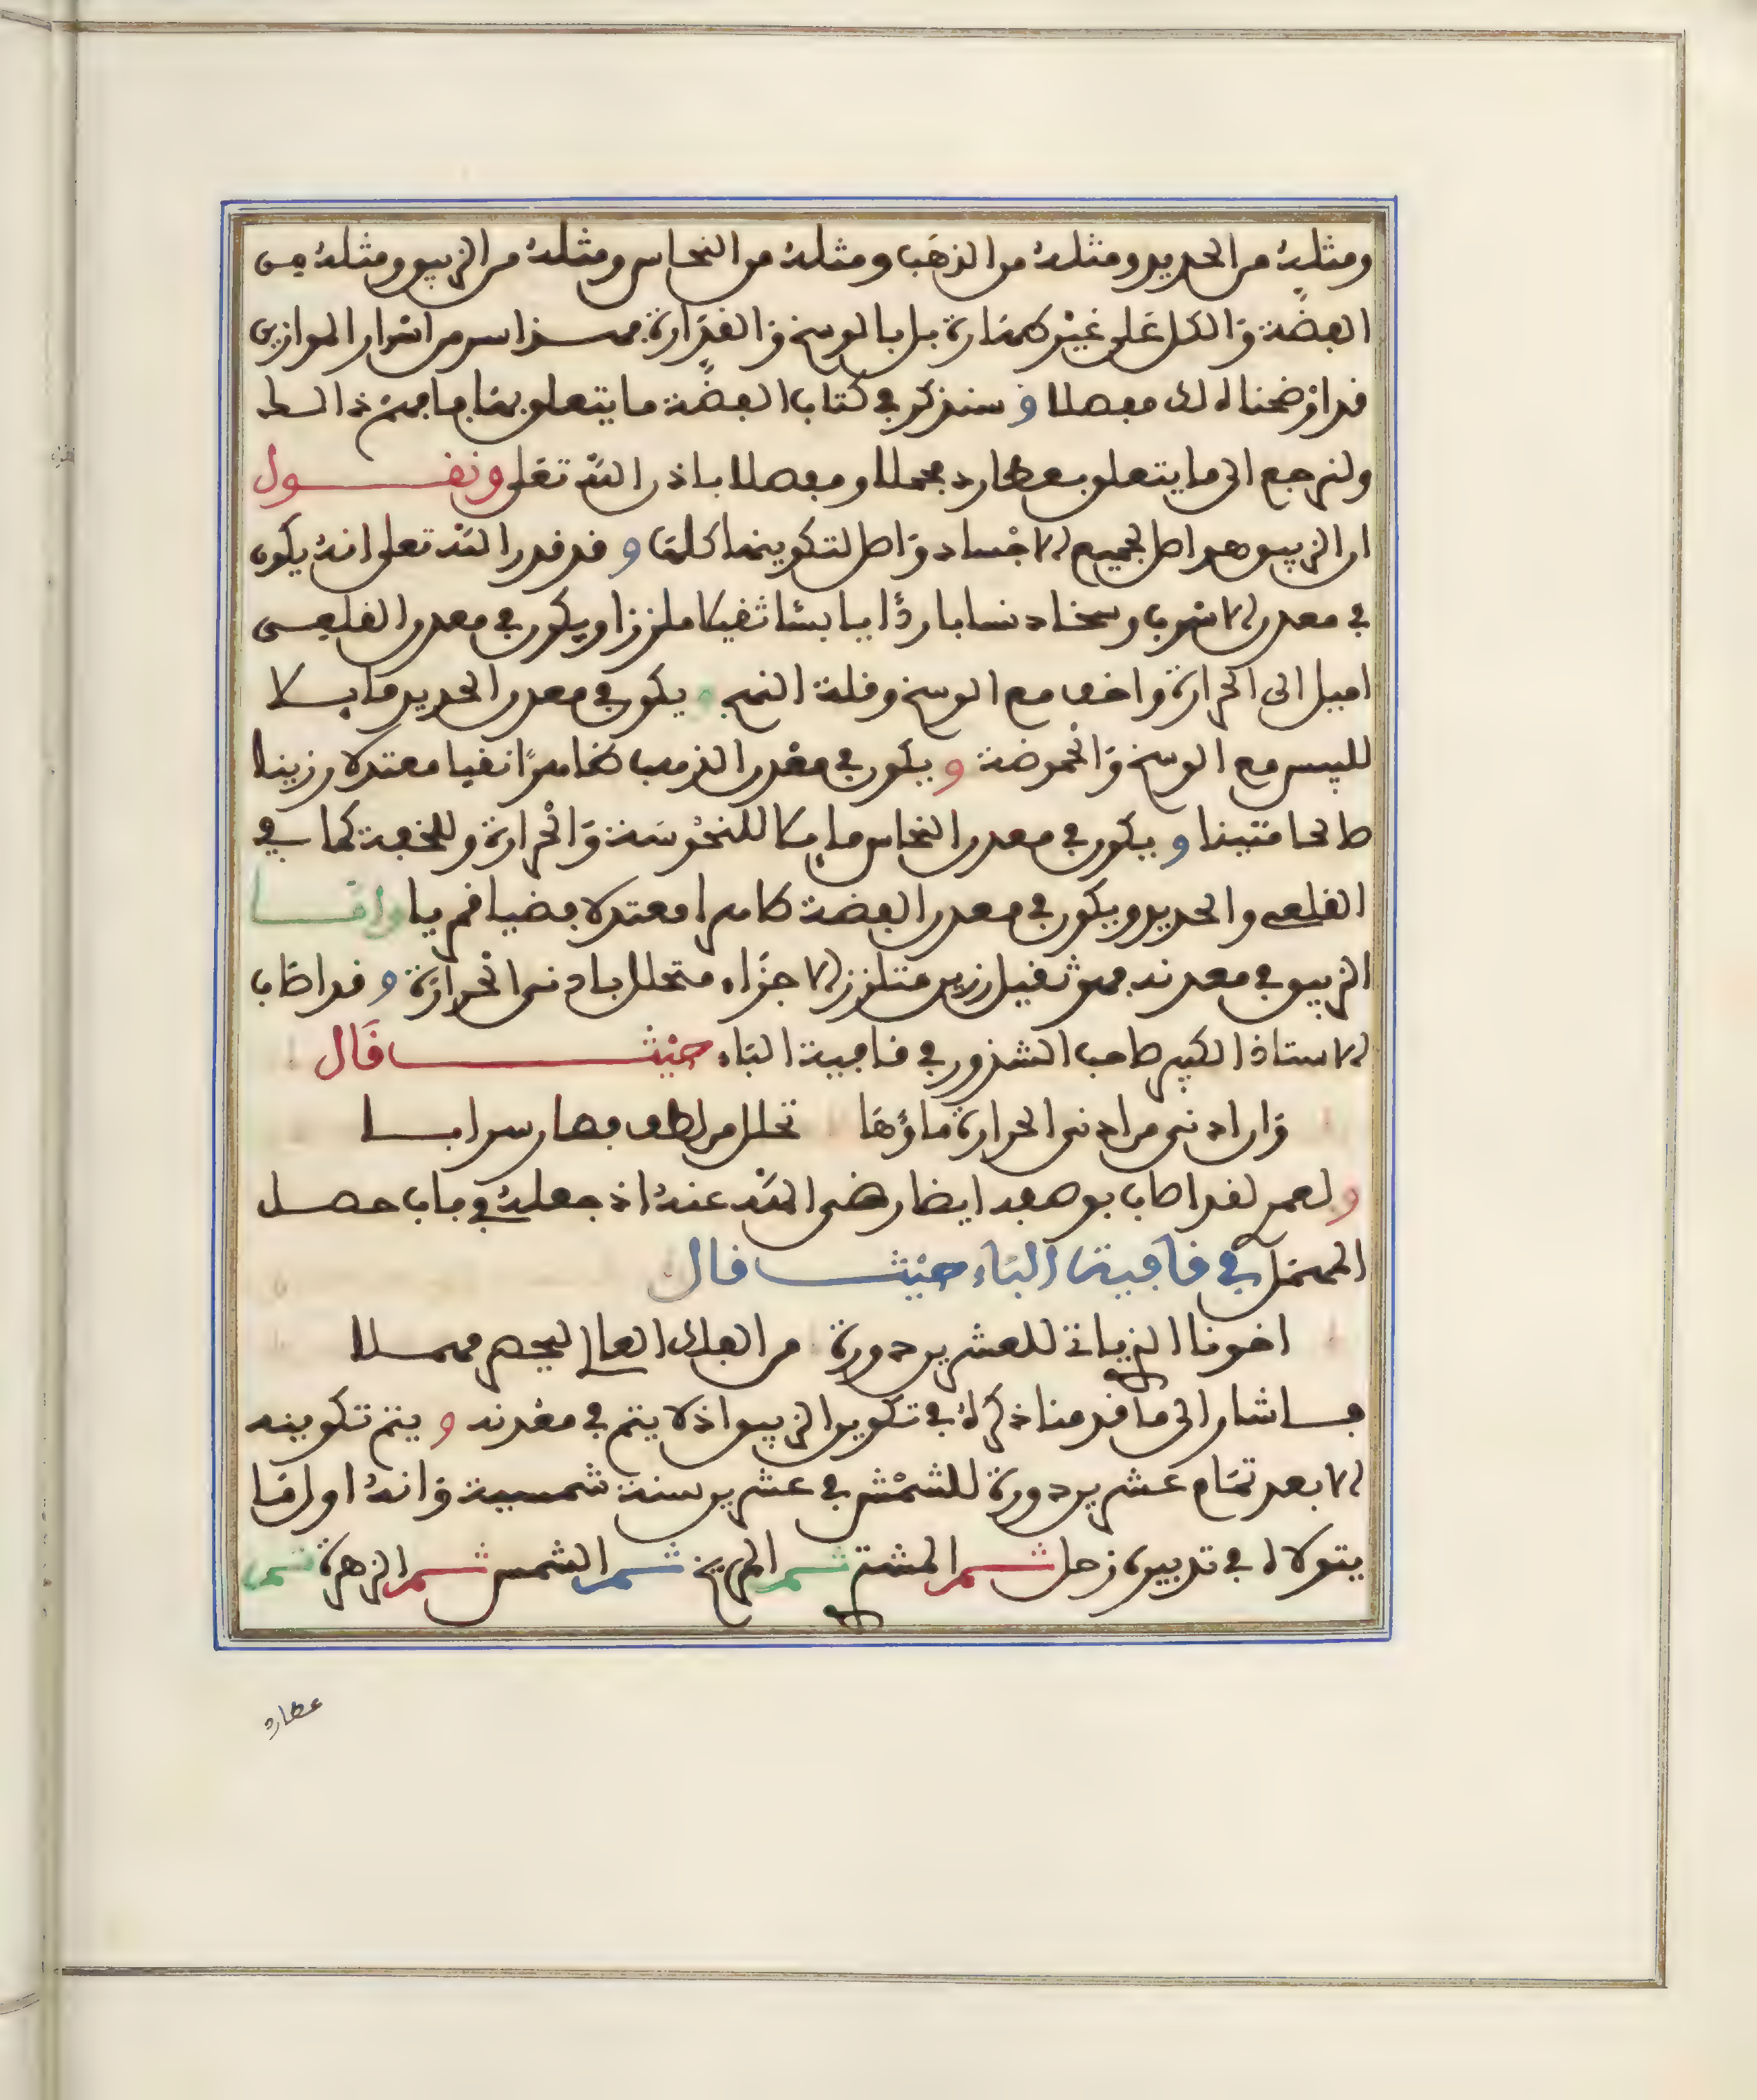 ومثله من الحديد ومثله من الذهب ومثله من النحاس ومثله من الزيبق ومثله من
الفضة والكل على غير طهارة بل بالوسخ والقذارة فهذا سر من اسرار الموازين
قد اوضحنا لك مفصلا و سنذكر في كتاب الفضة ما يتعلق بها فافهم ذالك
ولنرجع الى ما يتعلق بعطارد مجملا ومفصلا باذن الله تعلى ونقول
ان الزيبق هو اصل لجميع الاجساد واصل لتكوينها كلها و قد قدر الله تعلى انه يكون
في معدن الاسرب وسخا دنسا باردا يابسا ثقيلا ملززا ويكون في معدن القلعي
اميل الى الحرارة واخف مع الوسخ وقلة النضج و يكون في معدن الحديد مايلا
لليبس مع الوسخ والحموضة و يكون في معدن الذهب طاهرا نقيا معتدلا رزينا
صالحا متينا و يكون في معدن النحاس مايلا للنحوسة والحرارة وللخفة كما في
القلعي والحديد ويكون في معدن الفضة طاهرا معتدلا فضيا قمريا واما
الزيبق في معدنه فهو ثقيل رزين متلزز الاجزاء متحلل بادنى الحرارة و قد اصاب
الاستاذ الكبير صاحب الشذور في قافية الباء حيث قال
وان ادني من ادنى الحرارة ماؤها تحلل من لطف فصار سرابا
و لعمري لقد اصاب بوصفه ايضا رضي الله عنه اذ جعله في باب حصل
المهمل في قافية الباء حيث قال
اخونا الذي ياتي للعشرين دورة من الفلك العالي ليحصر مهملا
فاشار الى ما قدمنا ذكره في تكوين الزيبق اذ لا يتم في معدنه و يتم تكوينه
الا بعد تمام عشرين دورة للشمس في عشرين سنة شمسية وانه اول ما
يتولاه في تدبيره زحل ثم المشتري ثم المريخ ثم الشمس ثم الزهرة ثم
عطارد